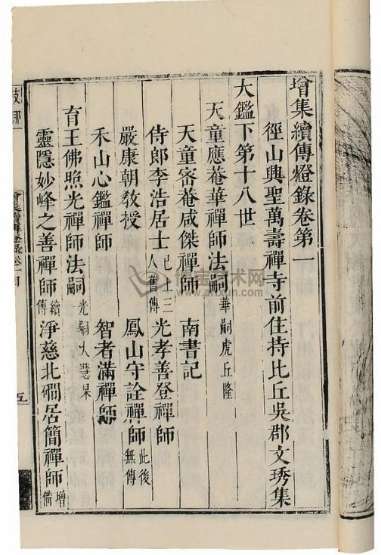 增集續傳燈錄卷第一
徑山興聖萬壽禪寺前住持比丘吳郡文琇集
大鑑下第十八世
天童應菴華禪師法嗣 華嗣虎丘隆
天童密菴咸傑禪師 南書記
侍郎李浩居士 已上三人舊傳 光孝善登禪師
嚴康朝教授 鳳山守詮禪師 此後無傳
禾山心鑑禪師 智者滿禪師
育王佛照光禪師法嗣 光嗣大慧杲
靈隱妙峰之善禪師 續傳 淨慈北磵居簡禪師 增
五